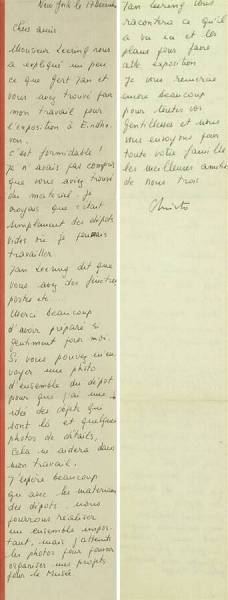 New York le 17 Decembre
Chers amis
Monsieur Leering nous
a expliqué un peu
ce que Gert Jan et
vous avez trouvé par
mon travail pour
l'exposition à Eindho-
ven.
c'est formidable!
Je n'avais pas compris
que vous aviez trouvé
du materiel. Je
croyais que c'était
simplement des dépots
vides où je pouvais
travailler
Jan Leering dit que
vous avez des fenêtres
portes etc...
Merci beaucoup
d'avoir préparé si
gentiment pour moi.
Si vous pouvez m'en
voyer une photo
d'ensemble du dépot
pour que j'ai une
idée des objets qui
sont là et quelques
photos de détails,
cela m'aidera dans
mon travail.
J'espère beaucoup
que avec les materiaux
des dépots nous
pourrons réaliser
un ensemble impor-
tant, mais j'attends
les photos pour pouvoir
organiser mes projets
pour le Musée.
Jan Leering vous
racontera ce qu'il
a vu ici et les
plans pour faire
cette exposition
Je vous remercie
encore beaucoup
pour toutes vos
gentillesses et nous
vous envoyons pour
toute votre famille
les meilleures amitiés
de nous trois
Christo